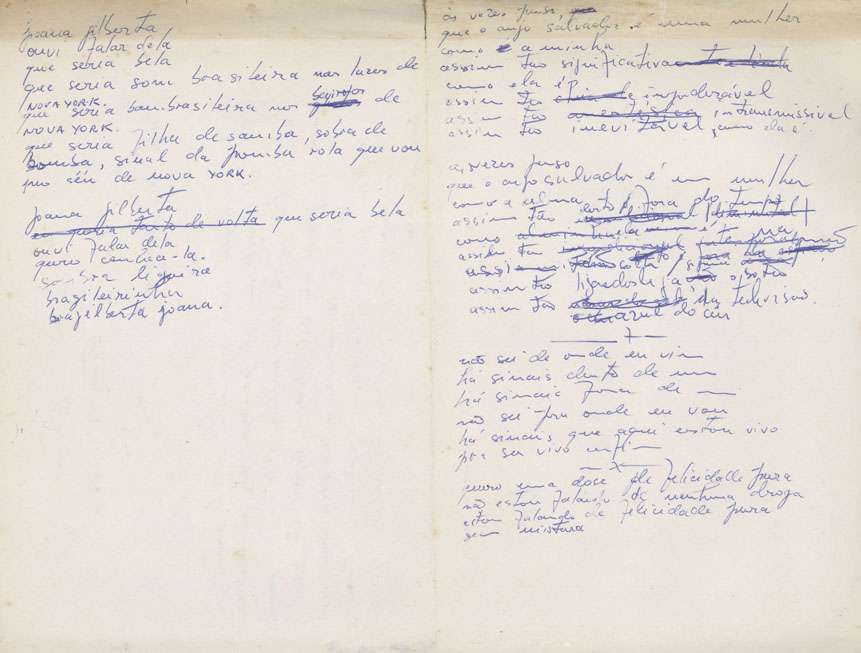 joana gilberta
ouvi falar dela
que seria bela
que seria som brasileira nas luzes de
NOVA YORK.
que seria bombrasileira nos de
NOVA YORK.
que seria filha de samba, sobra de
bomba, sinal da pomba rola que vou
pro céu de nova YORK.
joana gilberta
que seria bela
ouvi falar dela
quero conhece-la.
sombra ligeira
brasileirinha
gilberta joana.
às vezes penso,
que o anjo salvador é uma mulher
como a minha
assim tão significativa
como ela é
assim tão imponderável
assim tão intransmissível
assim tão inevitável, como ela é.
às vezes penso
que o anjo salvador é um mulher
como a alma
assim tão fora do
como
assim tão
assim tão
assim tão da televisão.
azul do céu
não sei de onde eu vim
há sinais dentro de mim
há sinais fora de mim
não sei pra onde eu vou
há sinais que aqui estou vivo
por ser vivo enfim
quero uma dose de felicidade pura
não estou falando de nenhuma droga
estou falando de felicidade pura
sem mistura